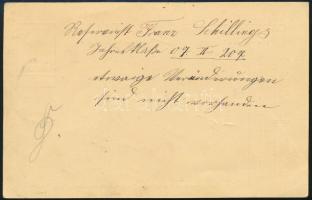 Reservist Franz Schilling
Jahresklasse 07 II 207.
etwaige Veränderungen
sind nicht vorhanden